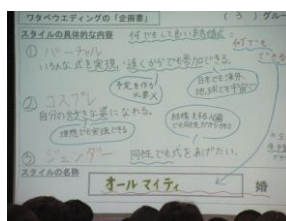 ワタベウエディングの「企画書」 ( 3 ) グルー
スタイルの具体的な内容 何でもしても良い結婚式
何でも
できる
① バーチャル
いろんな式を実現、遠くからでも参加できる。
予定を作る必要X
日本でも海外、地球でも宇宙
② コスプレ
自分の好きな姿になれる。
理想でも実現できる
③ ジェンダー 同性でも式をあげたい。
スタイルの名称
オールマイティ 婚